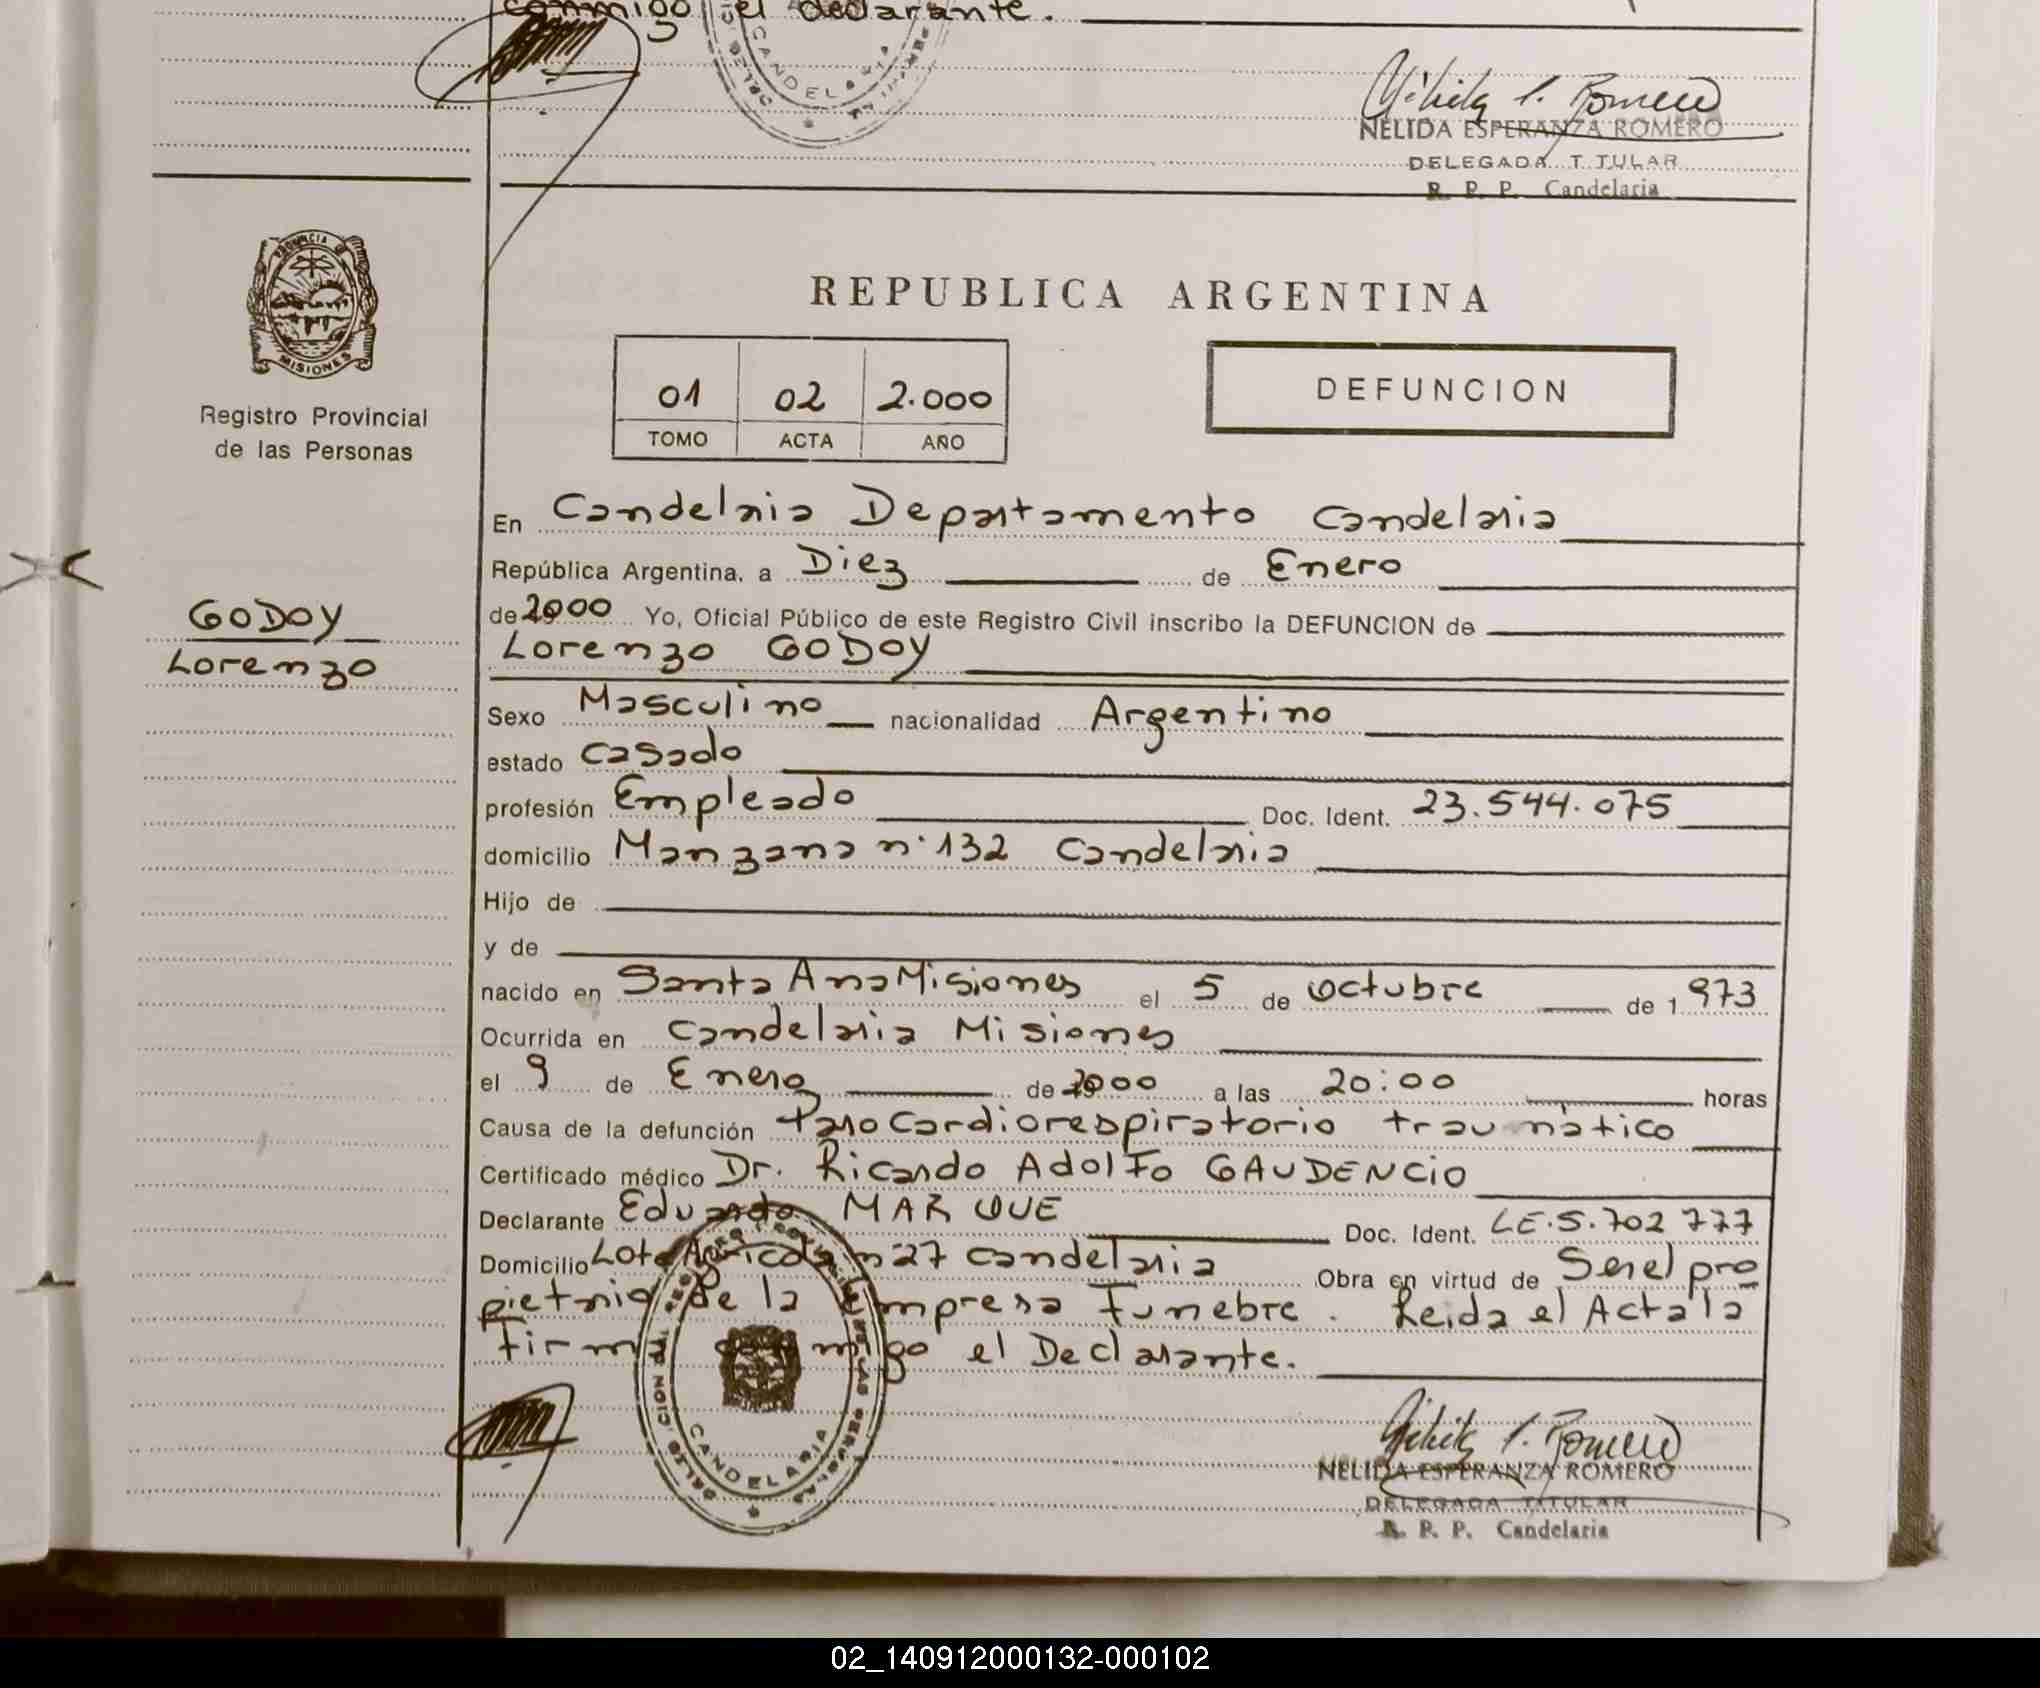 conmigo el declarante.
CANDELARIA
NELIDA ESPERANZA ROMERO
DELEGADA TITULAR
R. P. P. Candelaria
PROVINCIA DE
MISIONES
Registro Provincial
de las Personas
REPUBLICA ARGENTINA
01 02 2.000
TOMO ACTA AÑO
DEFUNCION
En Candelaria Departamento Candelaria
República Argentina, a Diez de Enero
de 2000 Yo, Oficial Público de este Registro Civil inscribo la DEFUNCION de
GODOY
Lorenzo
Lorenzo GODOY
Sexo Masculino nacionalidad Argentino
estado Casado
profesión Empleado Doc. Ident. 23.544.075
domicilio Manzana n° 132 Candelaria
Hijo de
y de
nacido en Santa Ana Misiones el 5 de Octubre de 1973
Ocurrida en Candelaria Misiones
el 9 de Enero de 2000 a las 20:00 horas
Causa de la defunción Paro Cardiorespiratorio traumático
Certificado médico Dr. Ricardo Adolfo GAUDENCIO
Declarante Eduardo MARQUE Doc. Ident. LE.5.702777
Domicilio Lote Agricola n° 27 Candelaria Obra en virtud de Ser el pro
pietario de la Empresa Funebre. Leida el Acta la
Firma conmigo el Declarante.
CANDELARIA
NELIDA ESPERANZA ROMERO
DELEGADA TITULAR
R. P. P. Candelaria
02_140912000132-000102